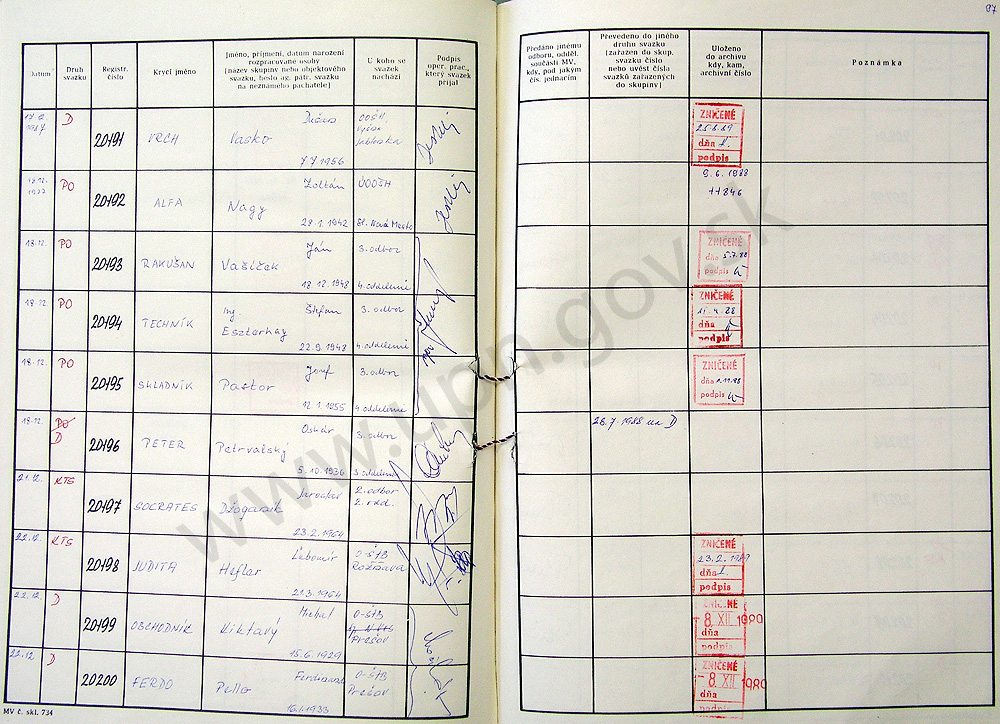 97
Datum
Druh svazku
Registr. číslo
Krycí jméno
Jméno, příjmení, datum narození
rozpracované osoby
(název skupiny nebo objektového
svazku, heslo ag. pátr. svazku
na neznámého pachatele)
U koho se
svazek
nachází
Podpis
oper. prac.,
který svazek
přijal
Předáno jinému
odboru, odděl.
součásti MV,
kdy, pod jakým
čís. jednacím
Převedeno do jiného
druhu svazku
(zařazen do skup.
svazku číslo
nebo uvést čísla
svazků zařazených
do skupiny)
Uloženo
do archivu
kdy, kam,
archivní číslo
Poznámka
D 20191 VRCH Vasko
7.7.1956
ZNIČENÉ
dňa
podpis
PO 20192 ALFA Nagy Zoltán
28.1.1942
9.6.1988
11846
18.12. PO 20193 RAKUŠAN Vašíček Ján 3. odbor
18.12.1948 4. oddelenie
ZNIČENÉ
dňa 5.7.88
podpis
18.12. PO 20194 TECHNIK Ing. Eszterhay Štefan 3. odbor
22.9.1948 4. oddelenie
ZNIČENÉ
dňa
podpis
18.12. PO 20195 SKLADNÍK Pastor Jozef 3. odbor
12.1.1955 4. oddelenie
ZNIČENÉ
dňa
podpis
18.12. PO D 20196 PETER Petrvalský Oskár 3. odbor
5.10.1936 3. oddelenie
26.7.1988 na D
21.12. KTS 20197 SOCRATES Džoganík Jaroslav 2. odbor
23.2.1964
22.12. KTS 20198 JUDITA Hefler Ľubomír O-ŠtB
Rožňava
21.3.1964
ZNIČENÉ
23.2.1989
dňa
podpis
22.12. D 20199 OBCHODNÍK Kiktavý Michal O-ŠtB
Prešov
15.6.1929
- 8. XII. 1989
dňa
podpis
22.12. D 20200 FERDO Pello Ferdinand O-ŠtB
Prešov
16.1.1933
ZNIČENÉ
- 8. XII. 1989
dňa
podpis
MV č. skl. 734
www.upn.gov.sk